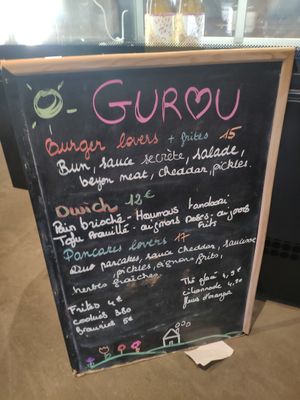 GUROU
Burger lovers + frites 15
Bun, sauce secrète, salade,
beyon meat, cheddar, pickles.
Dwich 12€
Pain brioché - Houmous tandoori
Tofu Brouillé - oignons Roses - oignons
Frits
Pancakes lovers 17
Duo pancakes, sauce cheddar, saucisse
, pickles, oignons frits,
herbes fraîches.
Frites 4€
cookies 3,80
Brownies 5€
Thé glacé 4,5€
citronnade 4,50
fleurs d'oranger